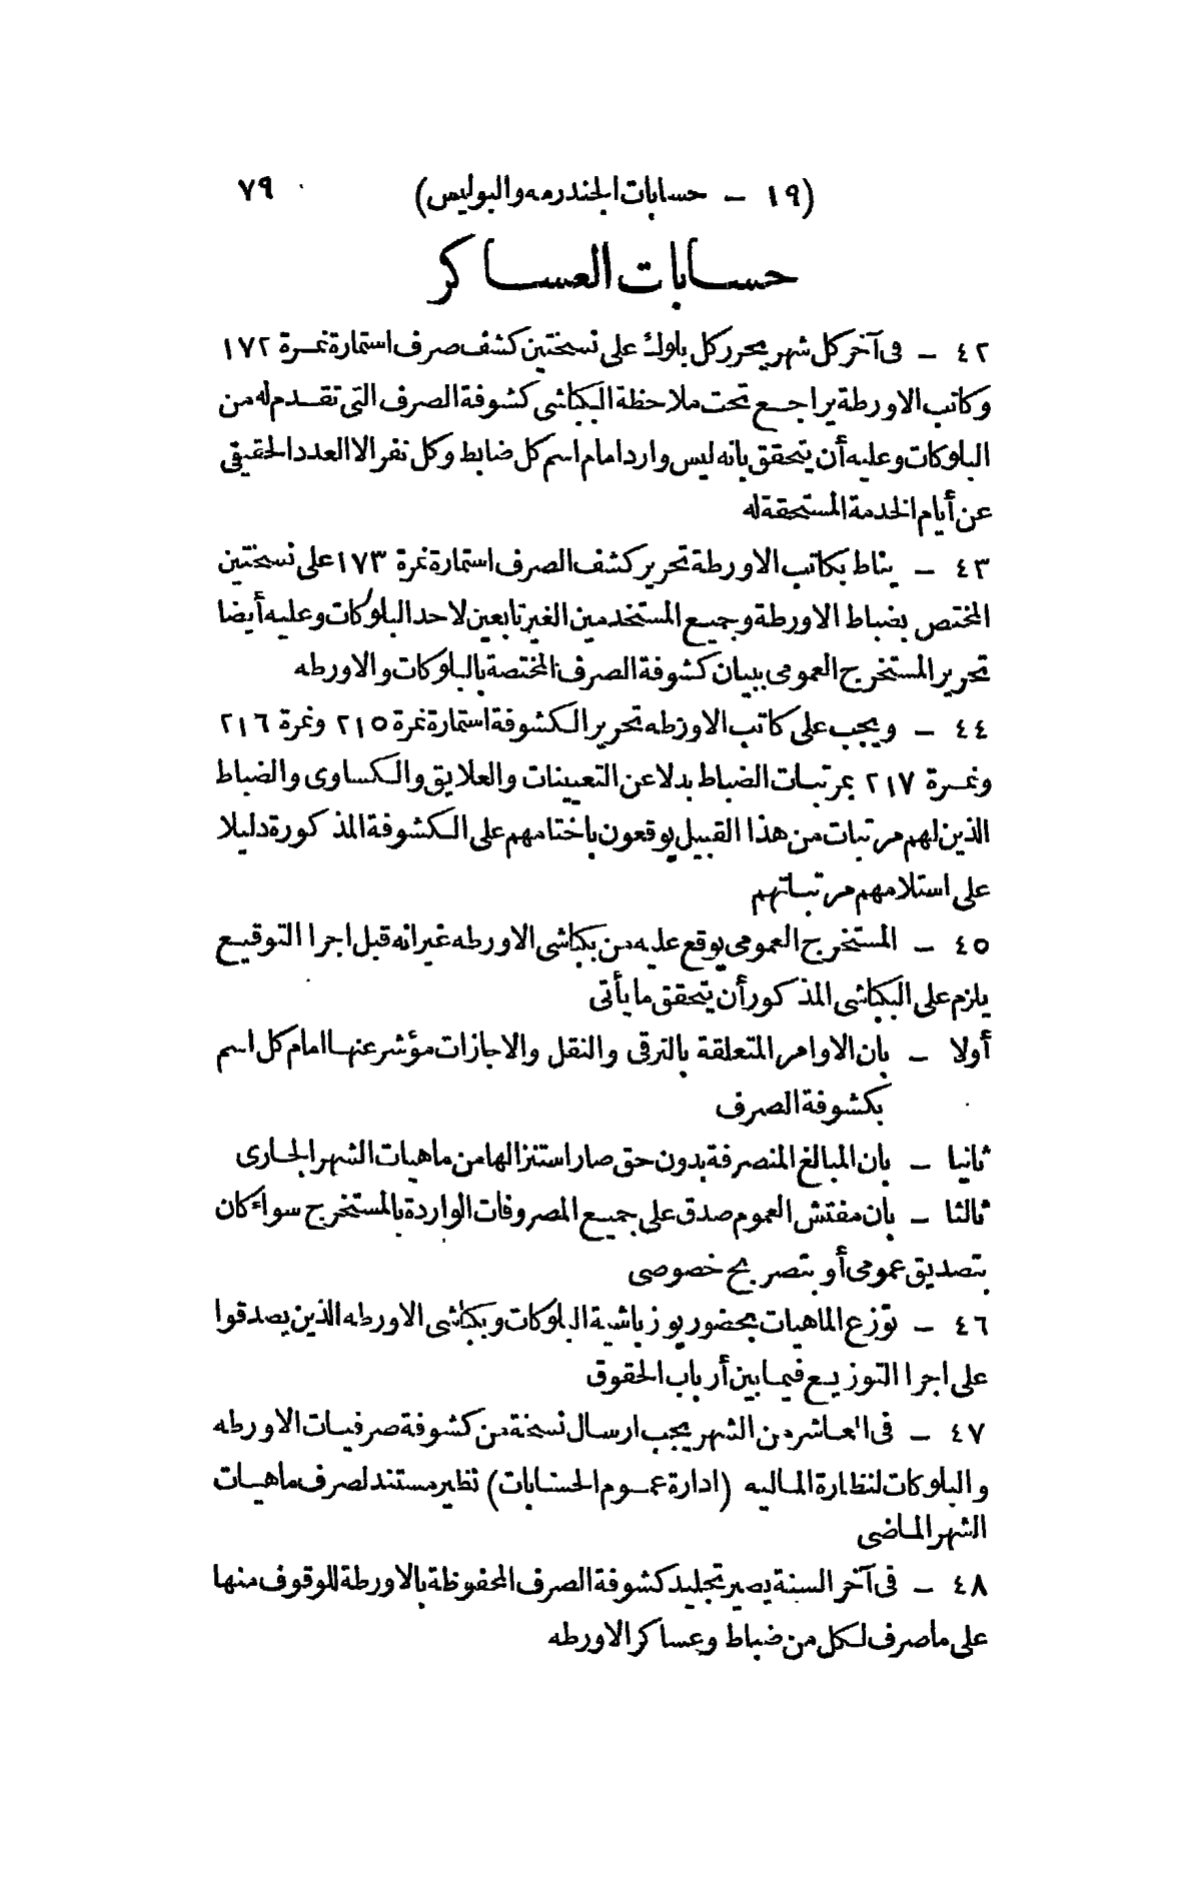 (١٩ - حسابات الجندرمه والبوليس) ٧٩
حسابات العساكر
٤٢ - فى آخر كل شهر يحرر كل بلوك على نسختين كشف صرف استمارة نمرة ١٧٢
وكاتب الاورطة يراجع تحت ملاحظة البكباشى كشوفة الصرف التى تقدم له من
البلوكات وعليه أن يتحقق بانه ليس وارد امام اسم كل ضابط وكل نفر الا العدد الحقيقى
عن أيام الخدمة المستحقة له
٤٣ - يناط بكاتب الاورطة تحرير كشف الصرف استمارة نمرة ١٧٣ على نسختين
المختص بضباط الاورطة وجميع المستخدمين الغير تابعين لاحد البلوكات وعليه أيضا
تحرير المستخرج العمومى ببيان كشوفة الصرف المختصة بالبلوكات والاورطه
٤٤ - ويجب على كاتب الاورطه تحرير الكشوفة استمارة نمرة ٢١٥ ونمرة ٢١٦
ونمرة ٢١٧ بمرتبات الضباط بدلا عن التعيينات والعلايق والكساوى والضباط
الذين لهم مرتبات من هذا القبيل يوقعون باختامهم على الكشوفة المذكورة دليلا
على استلامهم مرتباتهم
٤٥ - المستخرج العمومى يوقع عليه من بكباشى الاورطه غير انه قبل اجرا التوقيع
يلزم على البكباشى المذكور أن يتحقق ما يأتى
أولا - بان الاوامر المتعلقة بالترقى والنقل والاجازات مؤشر عنها امام كل اسم
بكشوفة الصرف
ثانيا - بان المبالغ المنصرفة بدون حق صار استنزالها من ماهيات الشهر الجارى
ثالثا - بان مفتش العموم صدق على جميع المصروفات الواردة بالمستخرج سواء كان
بتصديق عمومى أو بتصريح خصوصى
٤٦ - توزع الماهيات بحضور يوزباشية البلوكات وبكباشى الاورطه الذين يصدقوا
على اجرا التوزيع فيما بين أرباب الحقوق
٤٧ - فى العاشر من الشهر يجب ارسال نسخة من كشوفة صرفيات الاورطه
والبلوكات لنظارة الماليه (ادارة عموم الحسابات) نظير مستند لصرف ماهيات
الشهر الماضى
٤٨ - فى آخر السنة يصير تجليد كشوفة الصرف المحفوظة بالاورطة للوقوف منها
على ماصرف لكل من ضباط وعساكر الاورطه